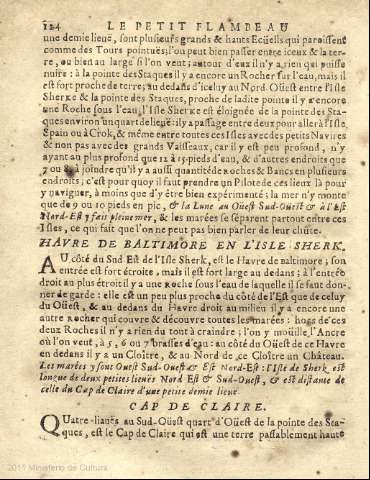 124 LE PETIT FLAMBEAU
une demie lieuë, sont plusieurs grands & hauts Ecüeils qui paroissent
comme des Tours pointuës; l'on peut bien passer entre iceux & la ter-
re, ou bien au large si l'on veut; autour d'eux il n'y a rien qui puisse
nuire: à la pointe des Staques il y a encore un Rocher sur l'eau, mais il
est fort proche de terre; au dedans d'iceluy au Nord-Oüest entre l'Isle
Sherke & la pointe des Staques, proche de ladite pointe il y a encore
une Roche sous l'eau, l'Isle Sherke est éloignée de la pointe des Sta-
ques environ un quart de lieuë: il y a passage entre deux pour aller à l'Isle,
Spain ou à Crok, & même entre toutes ces Isles avec des petits Navires
& non pas avec des grands Vaisseaux, car il y est peu profond, n'y
ayant au plus profond que 12 à 15 pieds d'eau, & d'autres endroits que
7 ou joindre qu'il y a aussi quantité de Roches & Bancs en plusieurs
endroits; c'est pour quoy il faut prendre un Pilote de ces lieux là pour
y naviguer, à moins que d'y être bien expérimenté; la mer n'y monte
que de 9 ou 10 pieds en pic, & la Lune au Ouest Sud-Ouest & à l'Est
Nord-Est y fait pleine mer, & les marées se séparent partout entre ces
Isles, ce qui fait que l'on ne peut pas bien parler de leur cluste.
HAVRE DE BALTIMORE EN L'ISLE SHERK.
AU côté du Sud Est de l'Isle Sherk, est le Havre de baltimore, son
entrée est fort étroite, mais il est fort large au dedans; à l'entrée
droit au plus étroit il y a une Roche sous l'eau de laquelle il se faut don-
ner de garde: elle est un peu plus proche du côté de l'Est que de celuy
du Oüest, & au dedans du Havre droit au milieu il y a encore une
autre Rocher qui couvre & découvre toutes les marées: hors de ces
deux Roches il n'y a rien du tout à craindre; l'on y moüille l'Ancre
où l'on veut, à 5, 6 ou 7 brasses d'eau: au côté du Oüest de ce Havre
en dedans il y a un Cloître, & au Nord de ce Cloître un Château.
Les marées y sont Ouest Sud-Ouest & Est Nord-Est: l'Isle de Sherk est
longue de deux petites lieuës Nord Est & Sud-Ouest, & est distante de
celle du Cap de Claire d'une petite demie lieuë.
CAP DE CLAIRE.
QUatre-lieuës au Sud-Oüest quart d'Oüest de la pointe des Sta-
ques, est le Cap de Claire qui est une terre passablement haute
Ministerio de Cultura